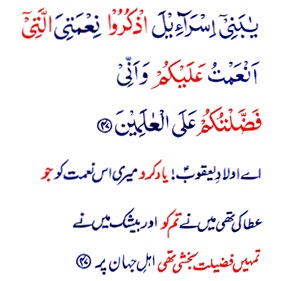 يٰبَنِيْۤ اِسْرَآءِيْلَ اذْكُرُوْا نِعْمَتِيَ الَّتِيْۤ
اَنْعَمْتُ عَلَيْكُمْ وَاَنِّيْ
فَضَّلْتُكُمْ عَلَى الْعٰلَمِيْنَ ۝۴۷
اے اولادِ یعقوبؑ! یاد کرو میری اس نعمت کو جو
عطا کی تھی میں نے تم کو اور بیشک میں نے
تمہیں فضیلت بخشی تھی اہلِ جہان پر ۝۴۷